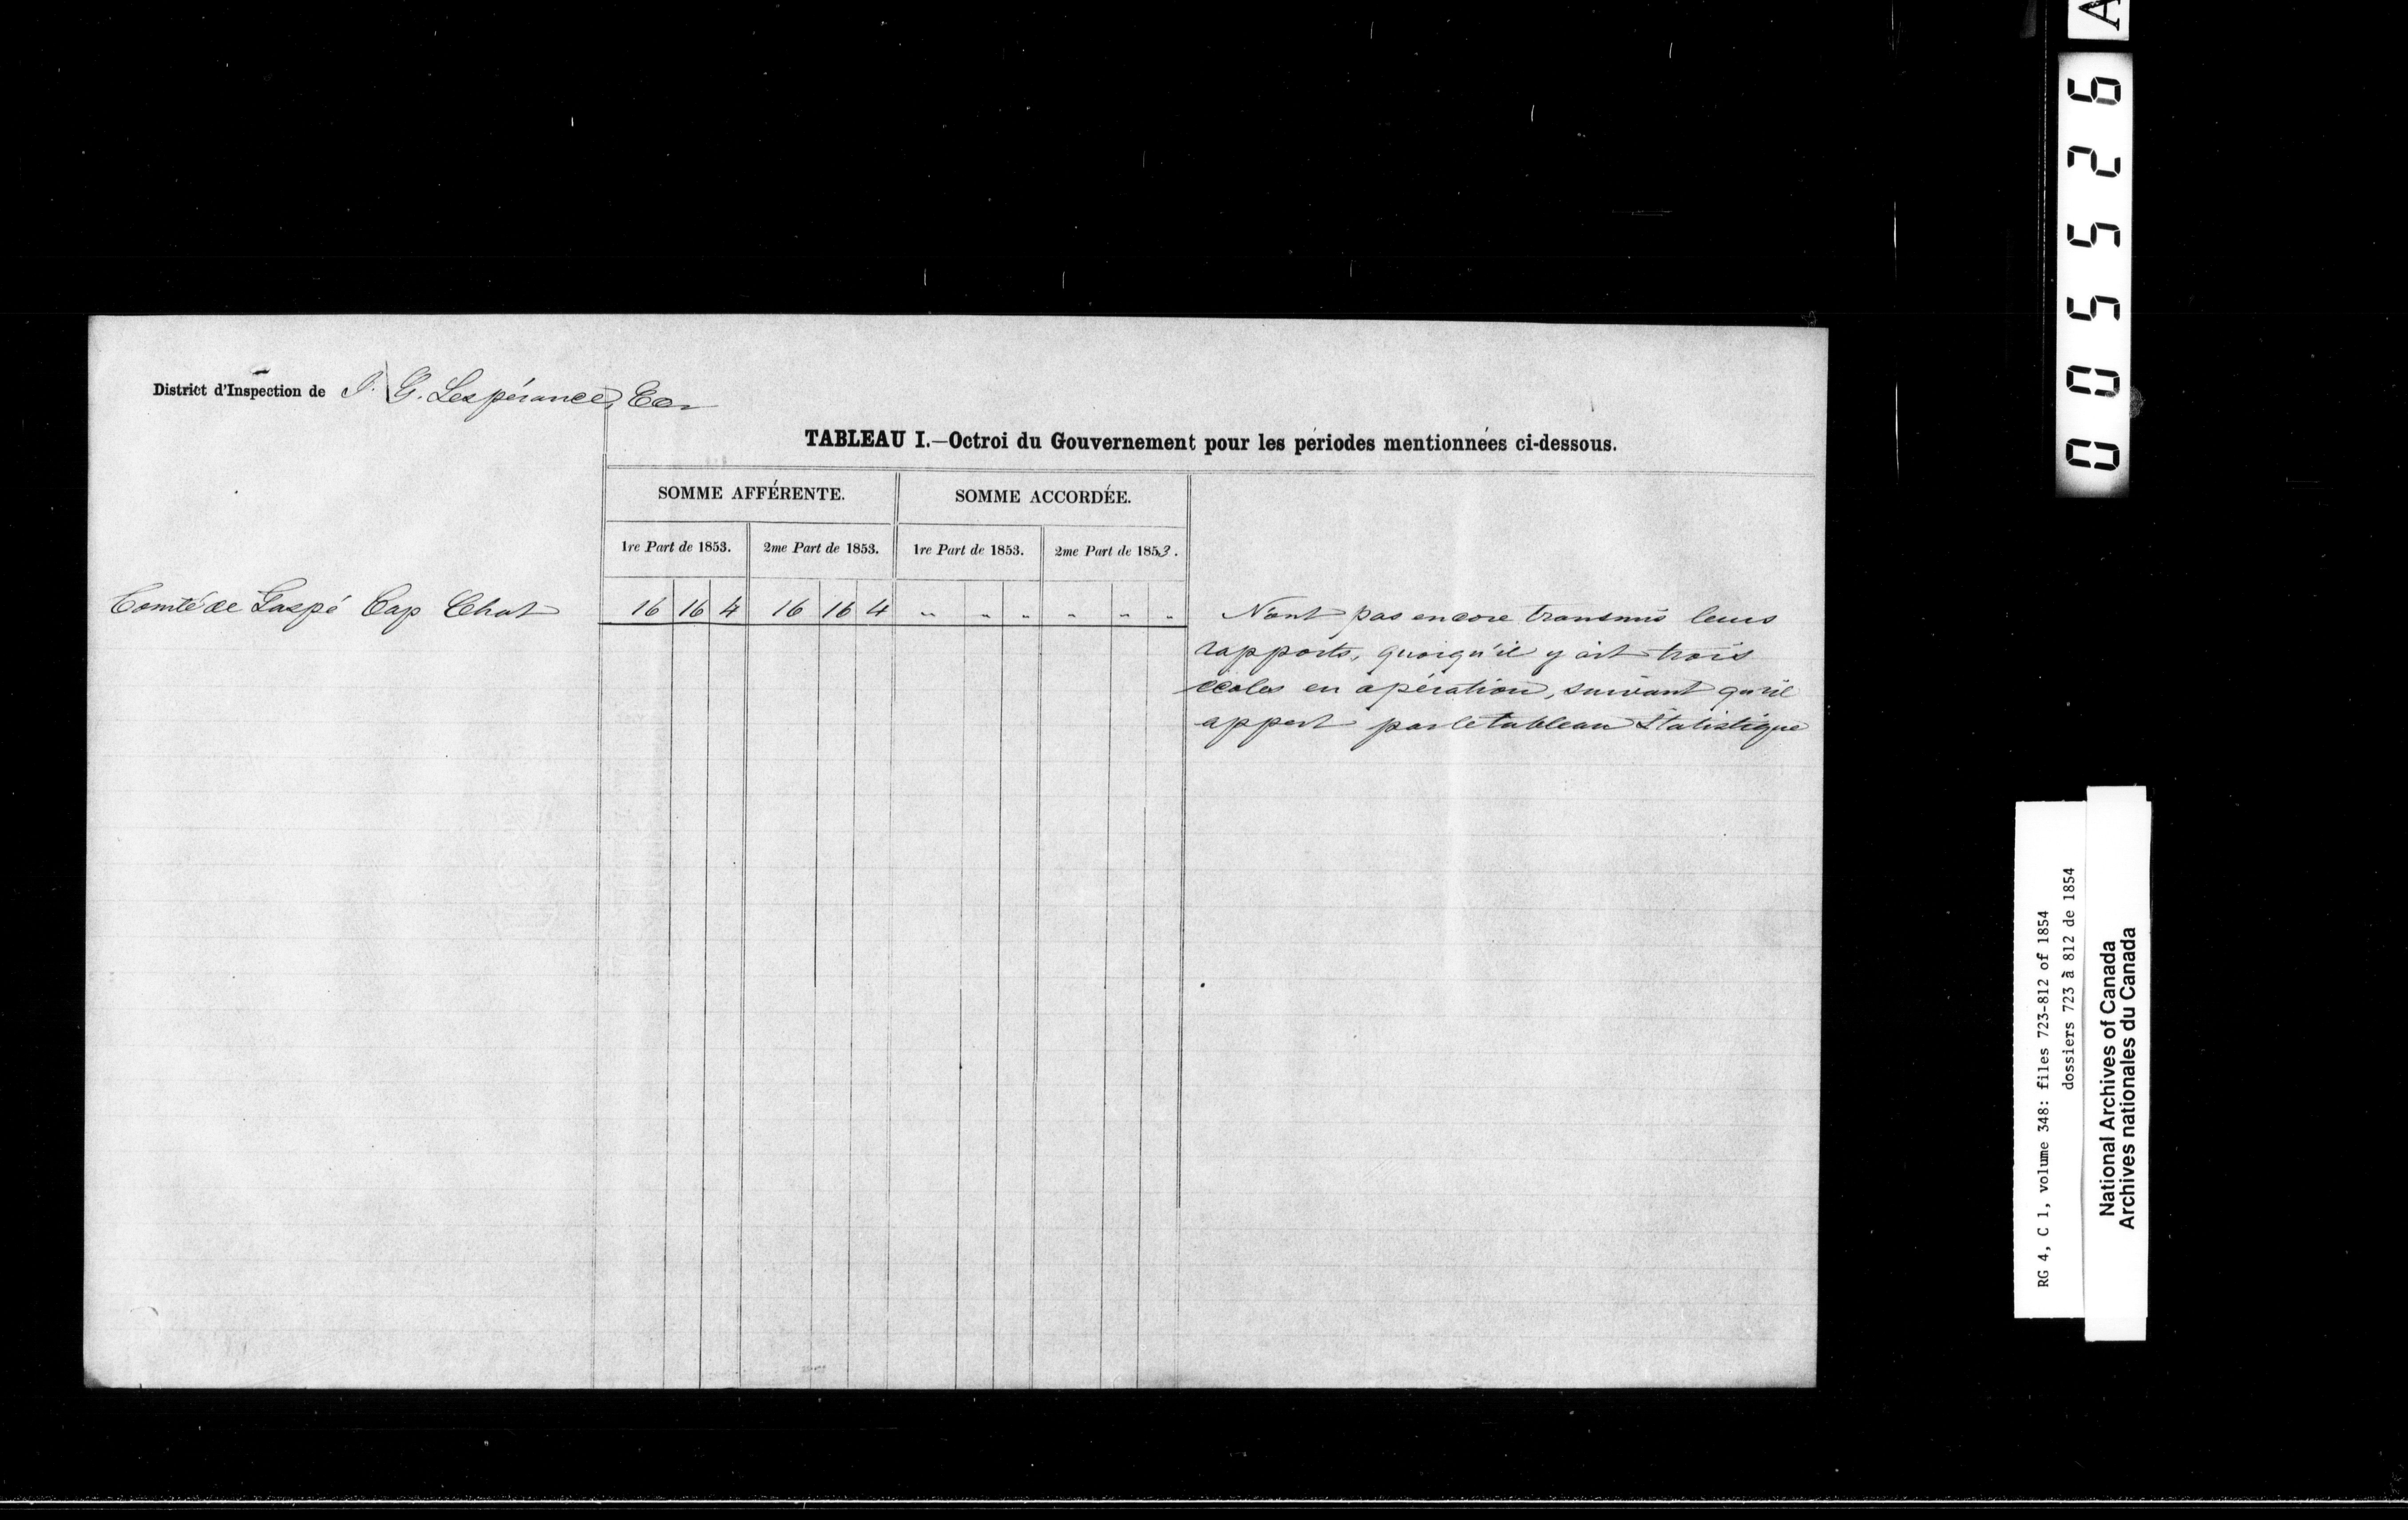 District d'Inspection de J. G. Lespérance, Ecr
TABLEAU I.—Octroi du Gouvernement pour les périodes mentionnées ci-dessous.
SOMME AFFÉRENTE. SOMME ACCORDÉE.
1re Part de 1853. 2me Part de 1853. 1re Part de 1853. 2me Part de 1853.
Comté de Gaspé Cap Chat 16 16 4 16 16 4 " " " " " " N'ont pas encore transmis leurs
rapports, quoiqu'il y ait trois
écoles en opération, suivant qu'il
appert par le tableau Statistique
005526
A
RG 4, C 1, volume 348: files 723-812 of 1854
dossiers 723 à 812 de 1854
National Archives of Canada
Archives nationales du Canada